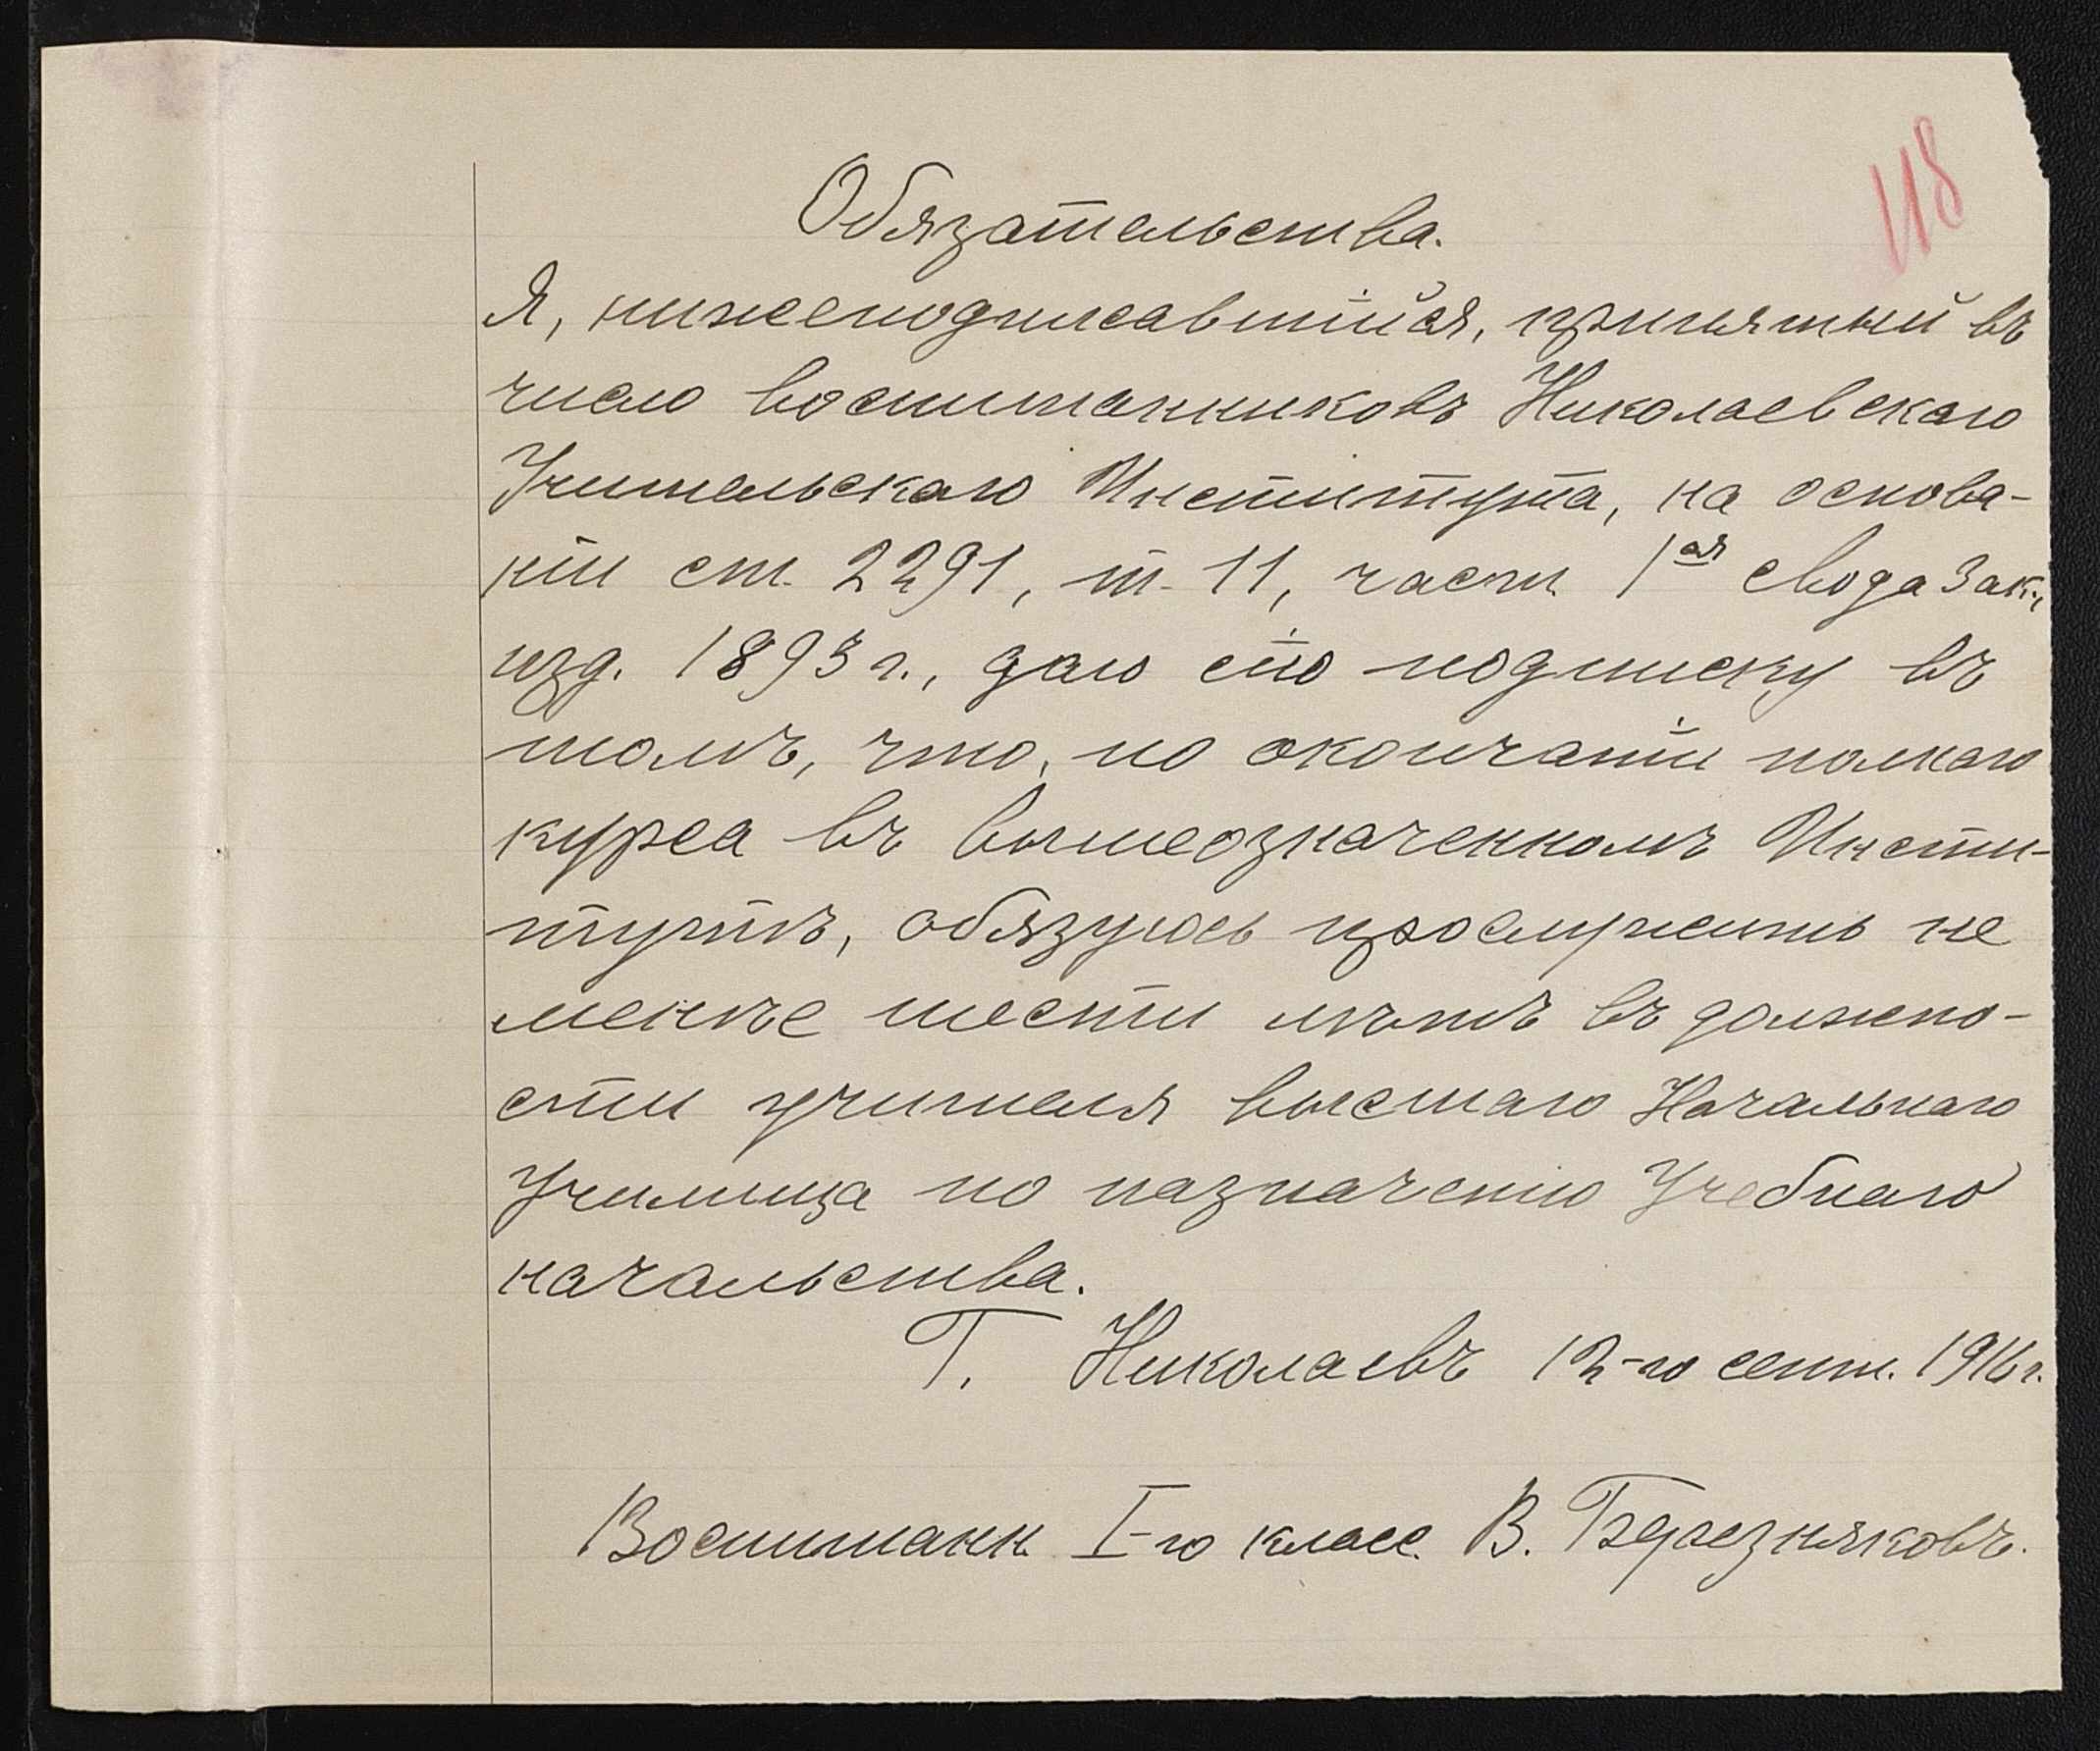 118
Обязательства.
Я, нижеподписавшійся, принятый въ
число воспитанниковъ Николаевскаго
Учительскаго Института, на основа-
ніи ст. 2291, т. 11, части 1ая свода Зак.,
изд. 1893 г., даю сію подписку въ
томъ, что, по окончаніи полнаго
курса въ вышеозначенномъ Инсти-
тутѣ, обязуюсь прослужить не
менѣе шести лѣтъ въ должно-
сти учителя высшаго Начальнаго
Училища по назначенію Учебнаго
начальства.
Г. Николаевъ 12-го сент. 1916 г.
Воспитанн. I-го класс. В. Березняковъ.